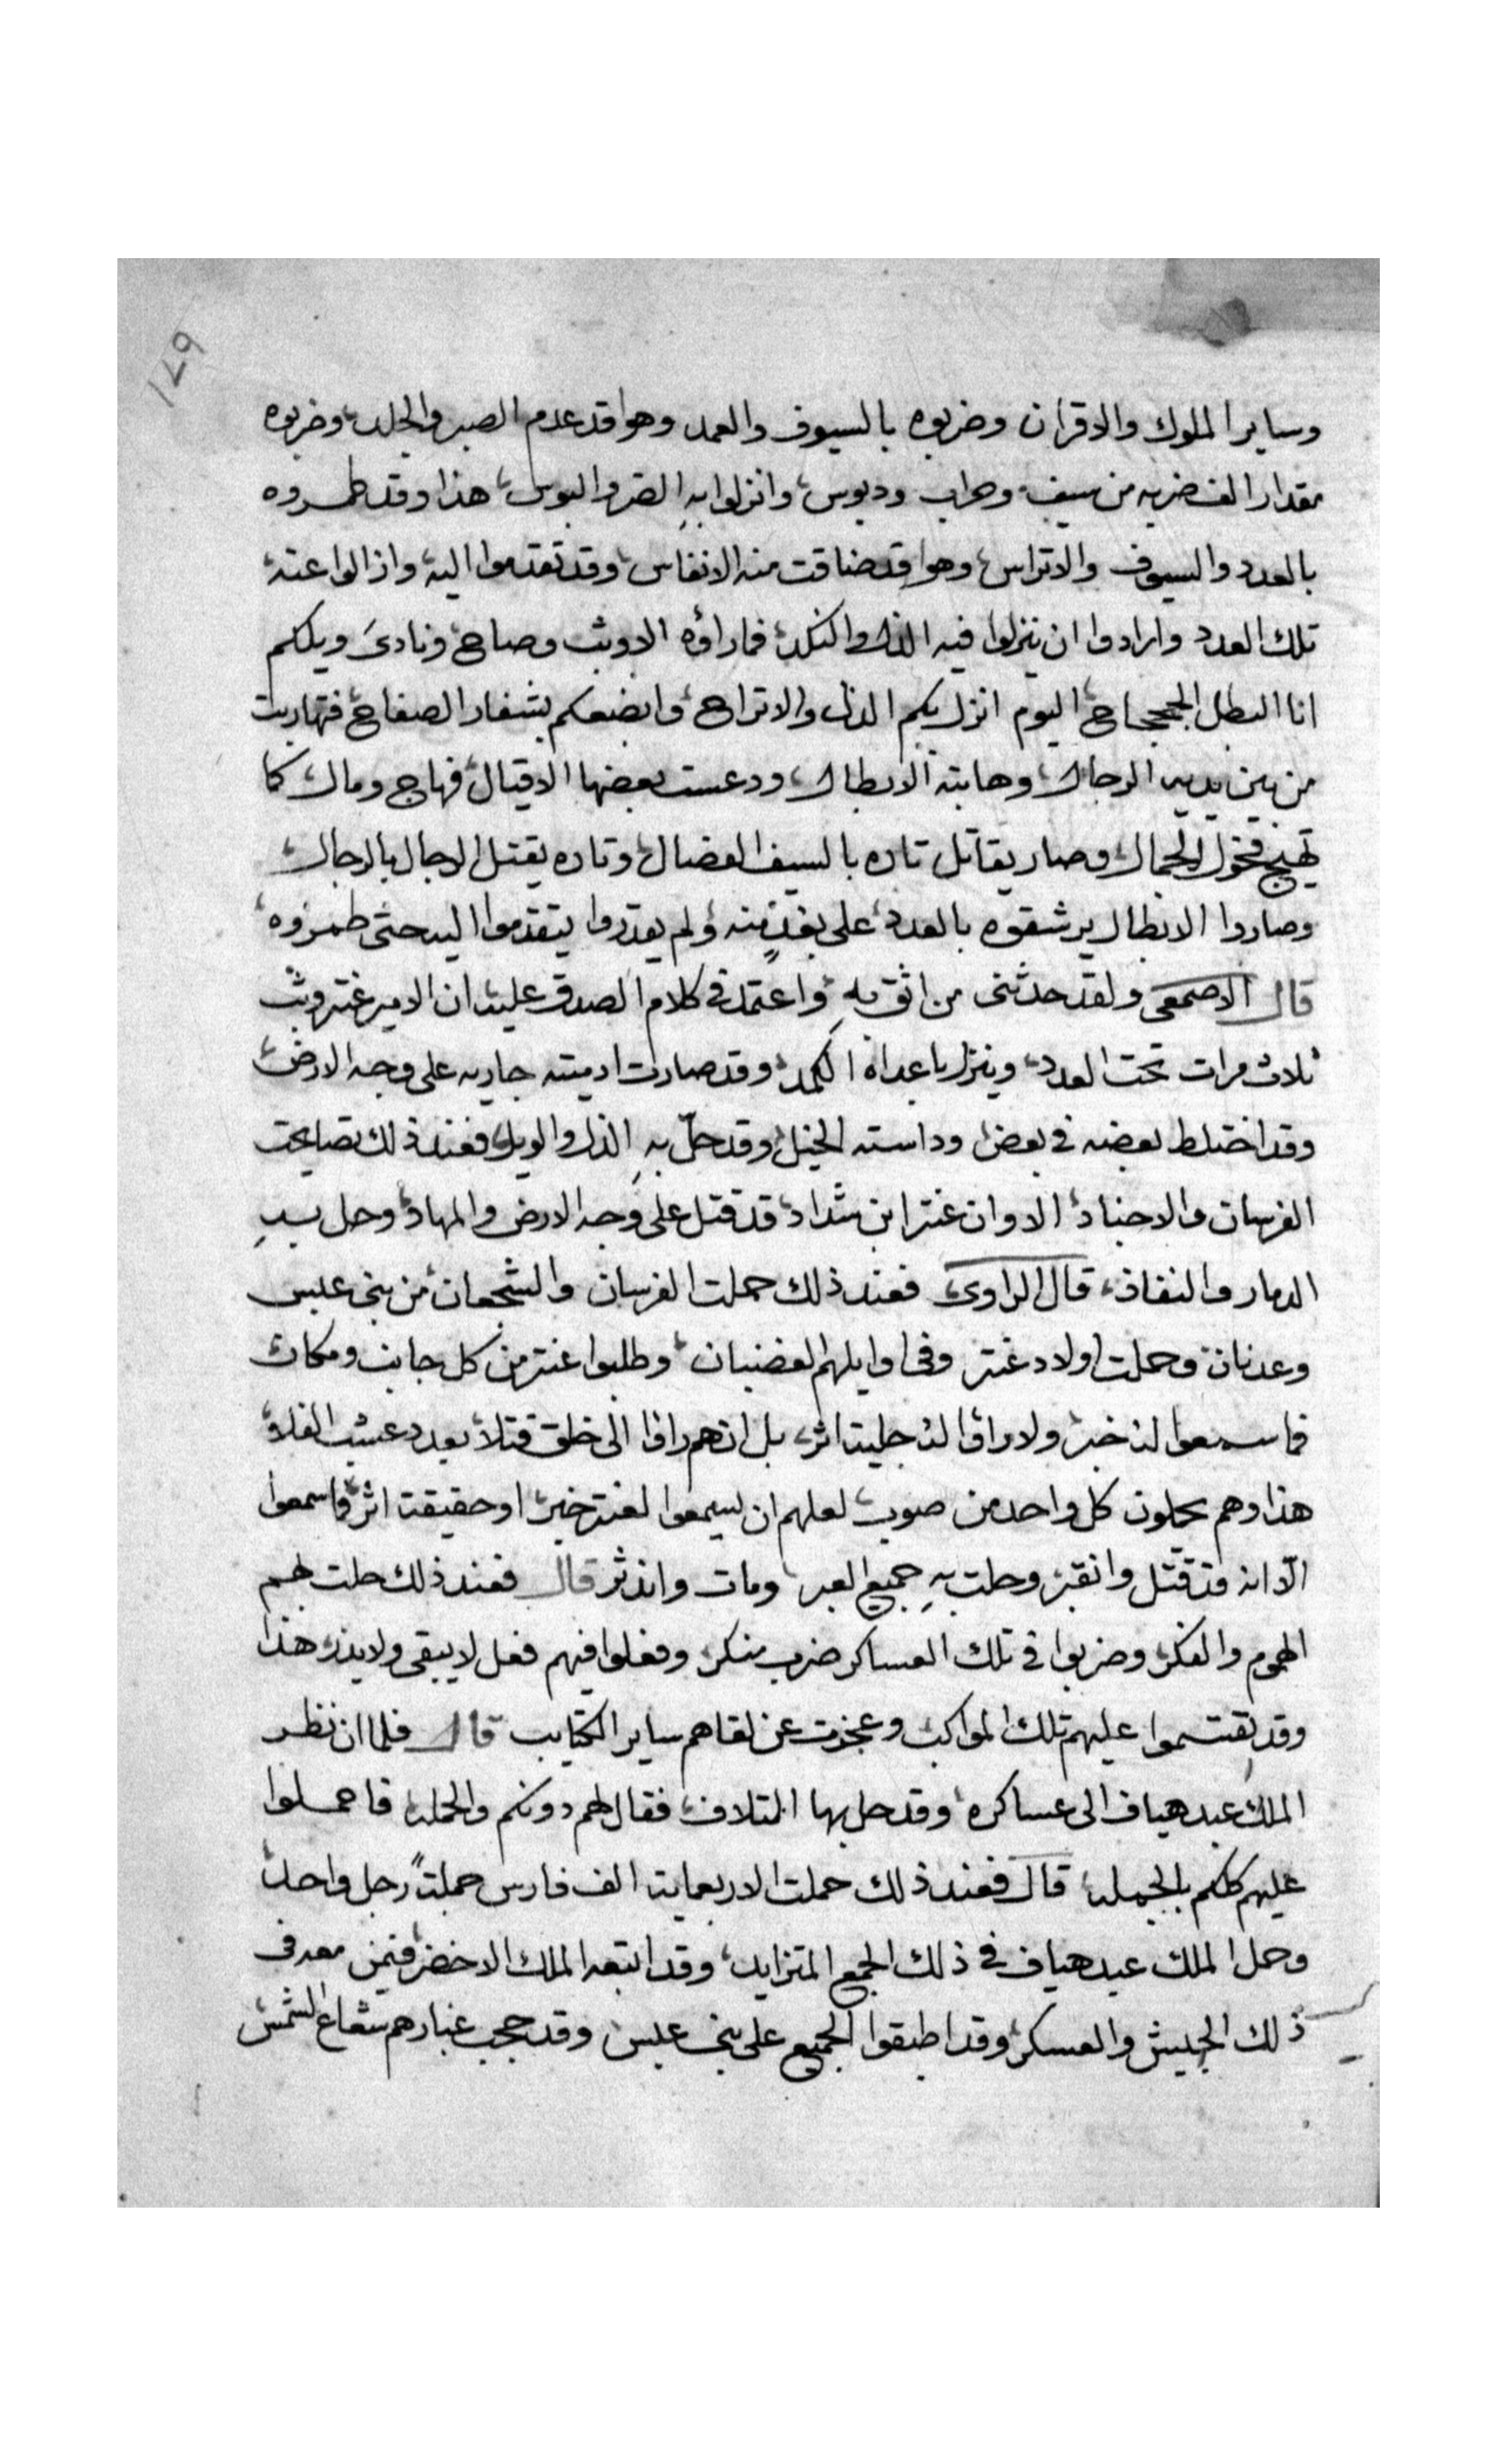 ١٤٩
وساير الملوك والاقران وضربوه بالسيوف والعمد وهوا قد عدم الصبر والجلد وضربوه
مقدار الف ضربه من سيف وحراب ودبوس وانزلوا بهِ الضر والبوس هذا وقد طمروه
بالعدد والسيوف والاتراس وهوا قد ضاقت منه الانفاس وقد تقدموا اليه وازالوا عنه
تلك العدد وارادوا ان ينزلوا فيه الذل والنكد فما راؤه الا وثب وصاح ونادىَ ويلكم
انا البطل الجحجاح اليوم انزل بكم الذل والاتراح وابضعكم بشفار الصفاح فتهاربت
من بين يديه الرجال وهابته الابطال ودعست بعضها الاقيال فهاج ومال كما
تهيج فحول الجمال وصار يقاتل تاره بالسيف الفضال وتاره يقتل الرجال بالرجال
وصاروا الابطال يرشقوه بالعدد على بعدٍ منه ولم يقدروا يتقدموا اليه حتى طمروه
قال الاصمعى ولقد حدثنى من اثق بهِ واعتمد فى كلام الصدق عليه ان الامير عنتر وثب
ثلاث مرات تحت العدد وينزل باعداه الكمد وقد صارت ادميته جاريه على وجه الارض
وقد اختلط بعضه فى بعض وداسته الخيل وقد حلّ بهِ الذل والويل فعند ذلك تصايحت
الفرسان والاجناد الا وان عنتر ابن شداد قد قتل على وجه الارض والمهاد وحل بيهِ
الدمار والنفاذ قال الراوى فعند ذلك حملت الفرسان والشجعان من بنى عبس
وعدنان وحملت اولاد عنتر وفى اوايلهم الغضبان وطلبوا عنتر من كل جانب ومكان
فما سمعوا له خبر ولا راوا له جلية اثر بل انهم راوا الى خلق قتلا بعدد عشب الفلا
هذا وهم يحملون كل واحد من صوب لعلهم ان يسمعوا لعنتر خبر او حقيقة اثر فما سمعوا
الّا انه قد قتل وانقبر وحلت بهِ جميع العبر ومات واندثر قال فعند ذلك حلت لهم
الهموم والفكر وضربوا فى تلك العساكر ضرب منكر وفعلوا فيهم فعل لا يبقى ولا يذر هذا
وقد تقتسموا عليهم تلك المواكب وعجزت عن لقاهم ساير الكتايب قال فلما ان نظر
الملك عبد هياف الى عساكره وقد حل بها التلاف فقال لهم دونكم والحمله فاحملوا
عليهم كلكم بالجمله قال فعند ذلك حملت الاربعماية الف فارس حملتاً رجل واحد
وحمل الملك عبد هياف فى ذلك الجمع المتزايد وقد اتبعه الملك الاخضر فيمن معه فى
ذلك الجيش والعسكر وقد اطبقوا الجميع على بنى عبس وقد حجب غبارهم شعاع الشمس